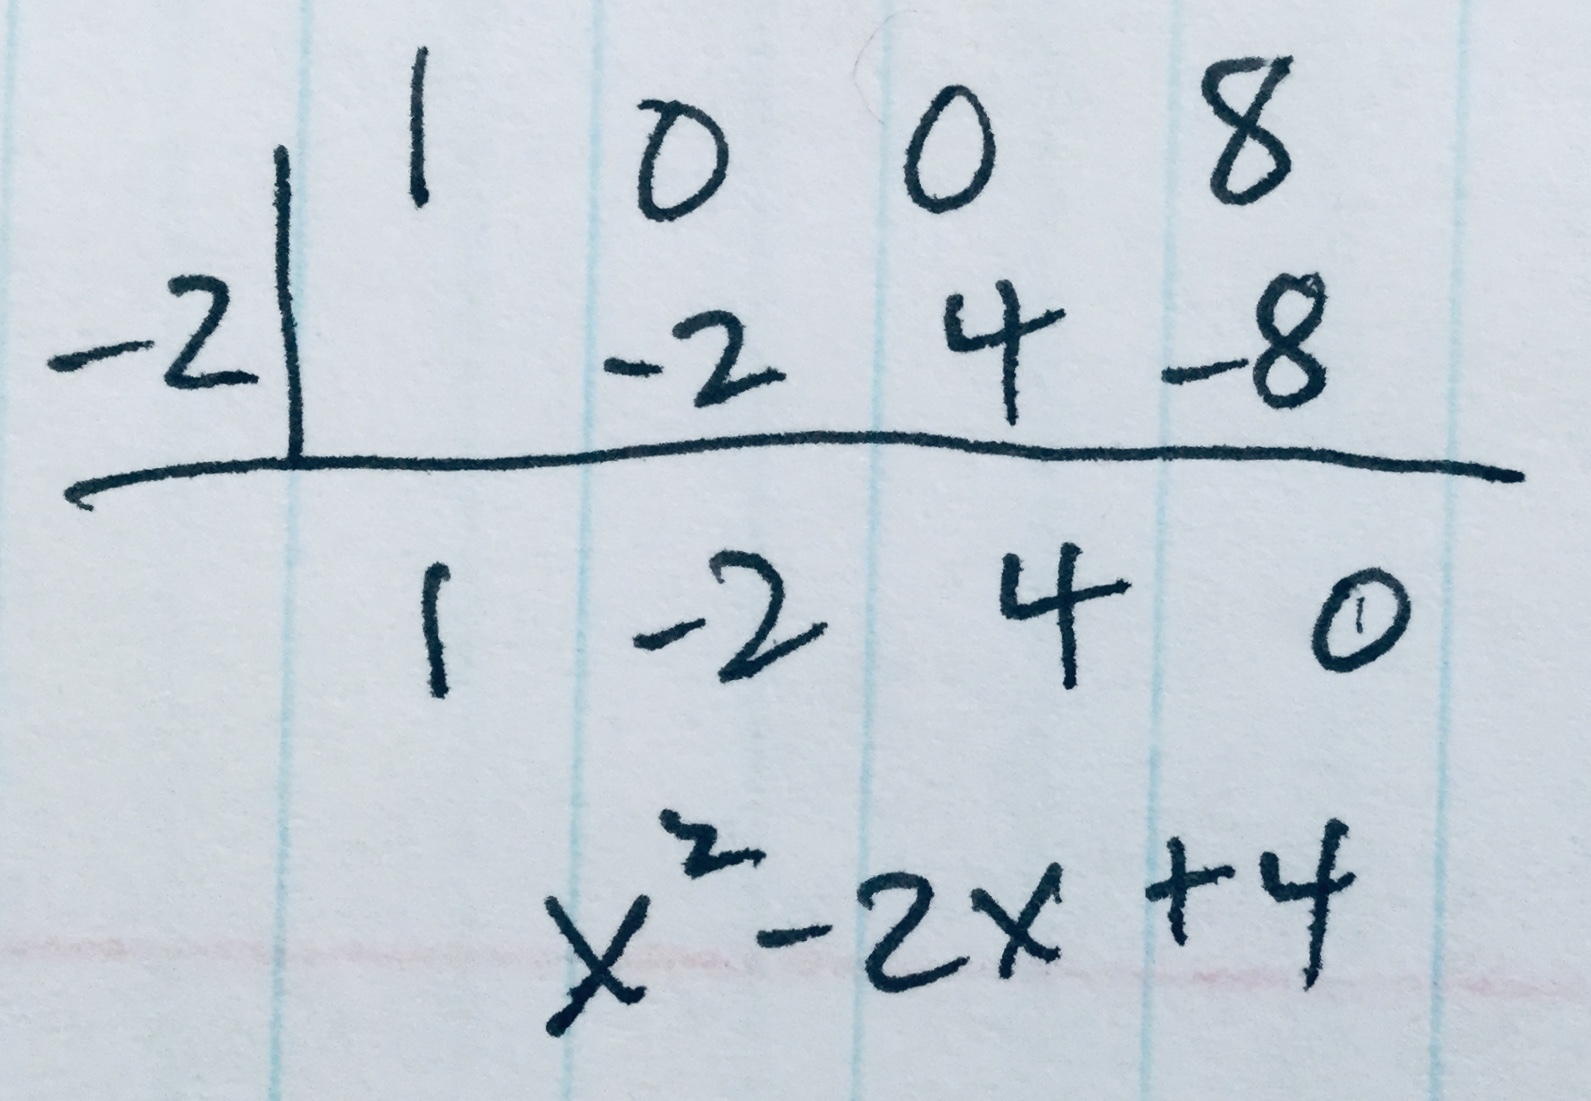 1 0 0 8
-2 -2 4 -8
1 -2 4 0
x² -2x +4